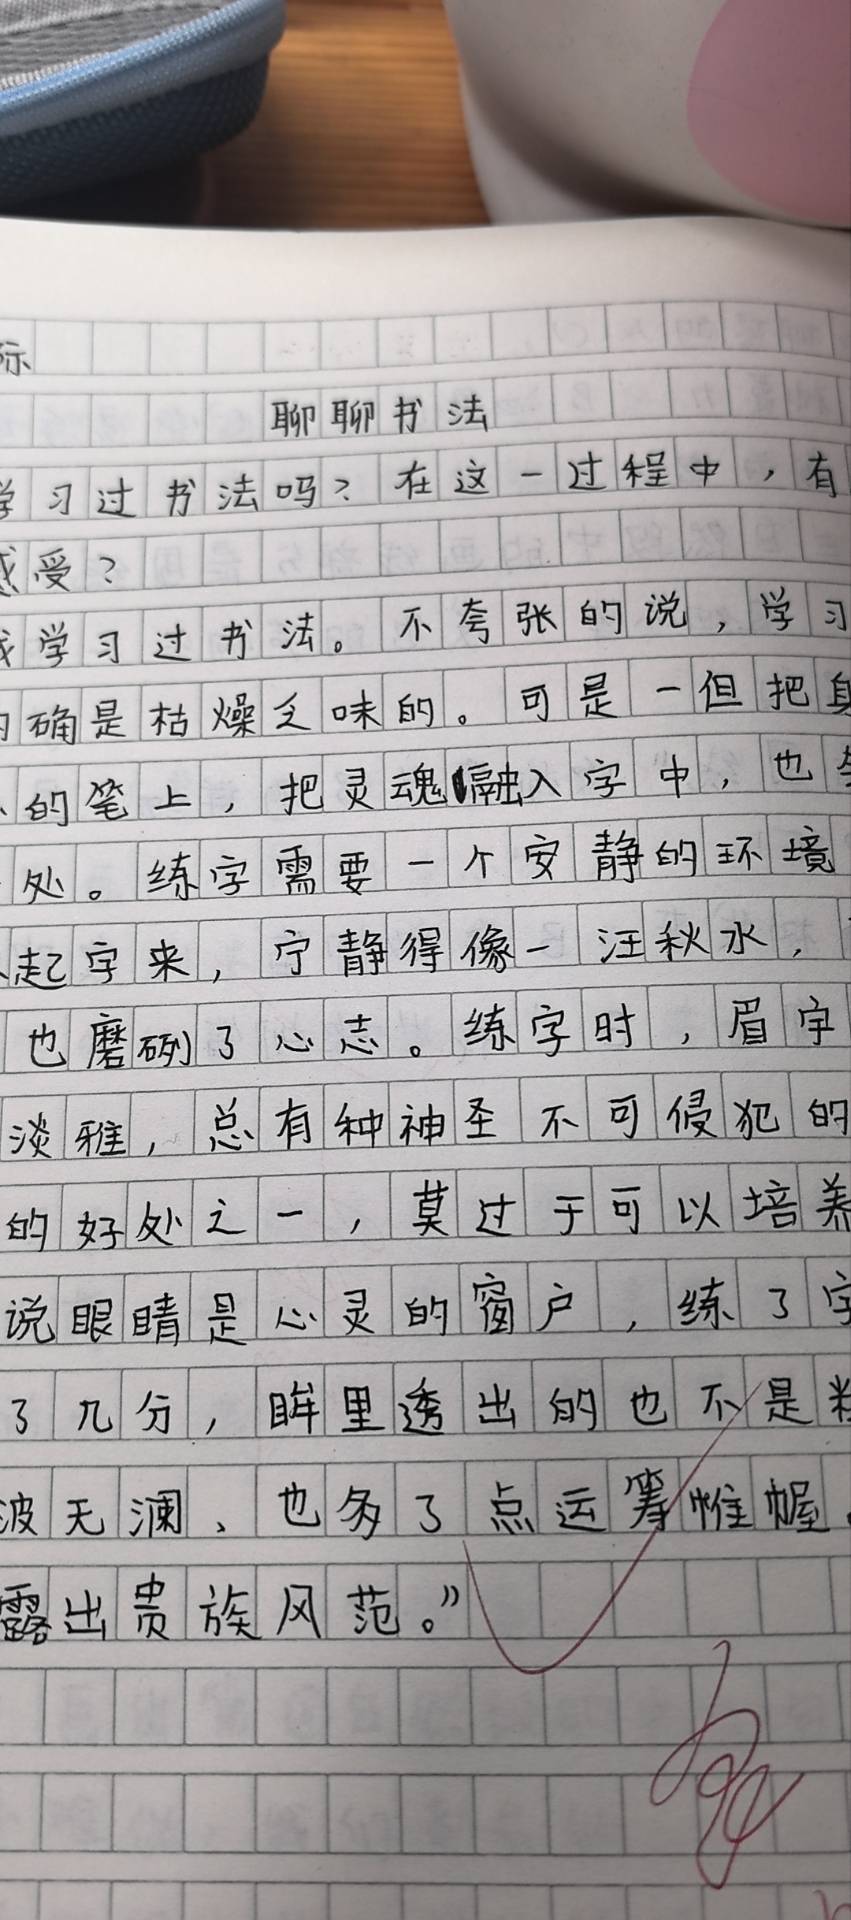 际
聊聊书法
学习过书法吗？在这一过程中，有
感受？
我学习过书法。不夸张的说，学习
的确是枯燥乏味的。可是一但把身
的笔上，把灵魂融入字中，也
处。练字需要一个安静的环境
起字来，宁静得像一汪秋水，
也磨砺了心志。练字时，眉宇
淡雅，总有种神圣不可侵犯的
的好处之一，莫过于可以培养
说眼睛是心灵的窗户，练了字
了几分，眸里透出的也不是
波无澜、也多了点运筹帷幄
露出贵族风范。”